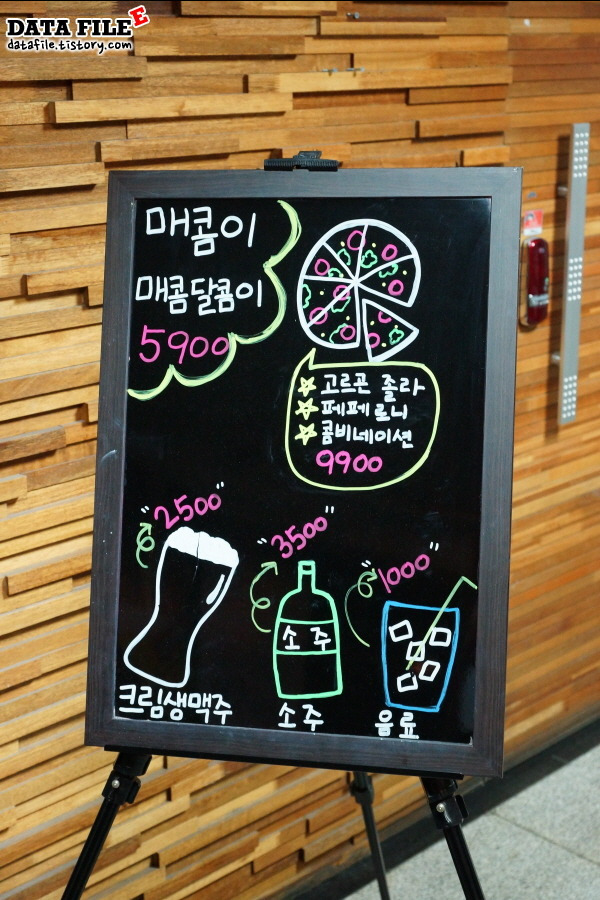 DATA FILE E
datafile.tistory.com
매콤이
매콤달콤이
5900
고르곤 졸라
페페로니
콤비네이션
9900
"2500"
"3500"
"1000"
소주
크림생맥주
소주
음료